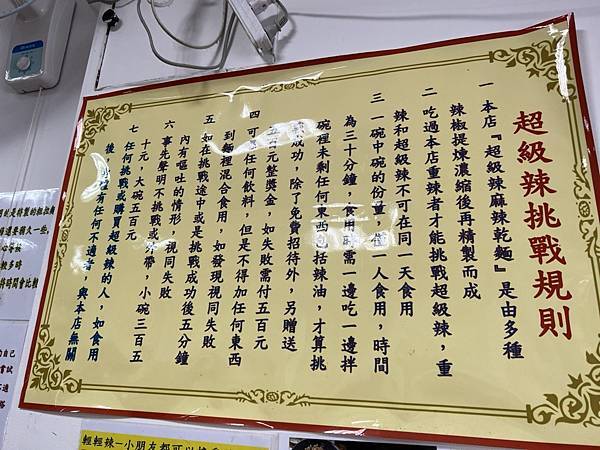 超級辣挑戰規則
一 本店『超級辣麻辣乾麵』是由多種
辣椒提煉濃縮後再精製而成
二 吃過本店重辣者才能挑戰超級辣，重
辣和超級辣不可在同一天食用
三 一碗中碗的份量，僅一人食用，時間
為三十分鐘，食用時需一邊吃一邊拌
碗裡未剩任何東西包括辣油，才算挑
成功，除了免費招待外，另贈送
五百元整獎金，如失敗需付五百元
四 可 任何飲料，但是不得加任何東西
到麵裡混合食用，如發現視同失敗
五 如在挑戰途中或是挑戰成功後五分鐘
內有嘔吐的情形，視同失敗
六 事先聲明不挑戰或外帶，小碗三百五
十元，大碗五百元
七 任何挑戰或購買超級辣的人，如食用
後 有任何不適 與本店無關
輕輕辣－小朋友都可以